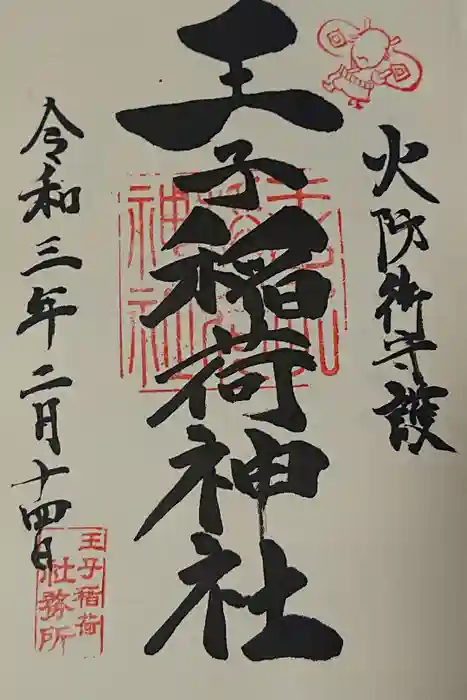 火防御守護
王子稲荷神社
令和三年二月十四日
王子稲荷
社務所